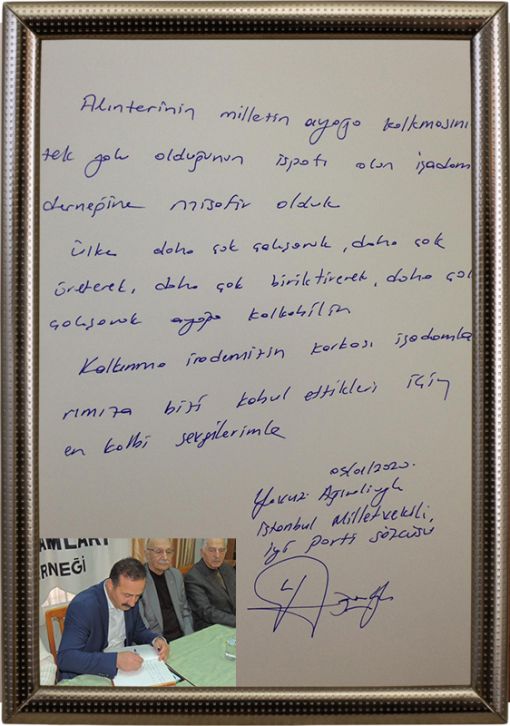 Alınterinin milletin ayağa kalkmasını
tek yolu olduğunun ispatı olan işadam
derneğine misafir olduk
ülke daha çok çalışarak, daha çok
üreterek, daha çok biriktirerek, daha çok
çalışarak ayağa kalkabilir
Kalkınma irademizin karkası işadamla
rımıza bizi kabul ettikleri için
en kalbi sevgilerimle
05/01/2020.
Yavuz Ağıralioğlu
İstanbul Milletvekili,
İyi Parti Sözcüsü
AMLARI
ERNEĞİ